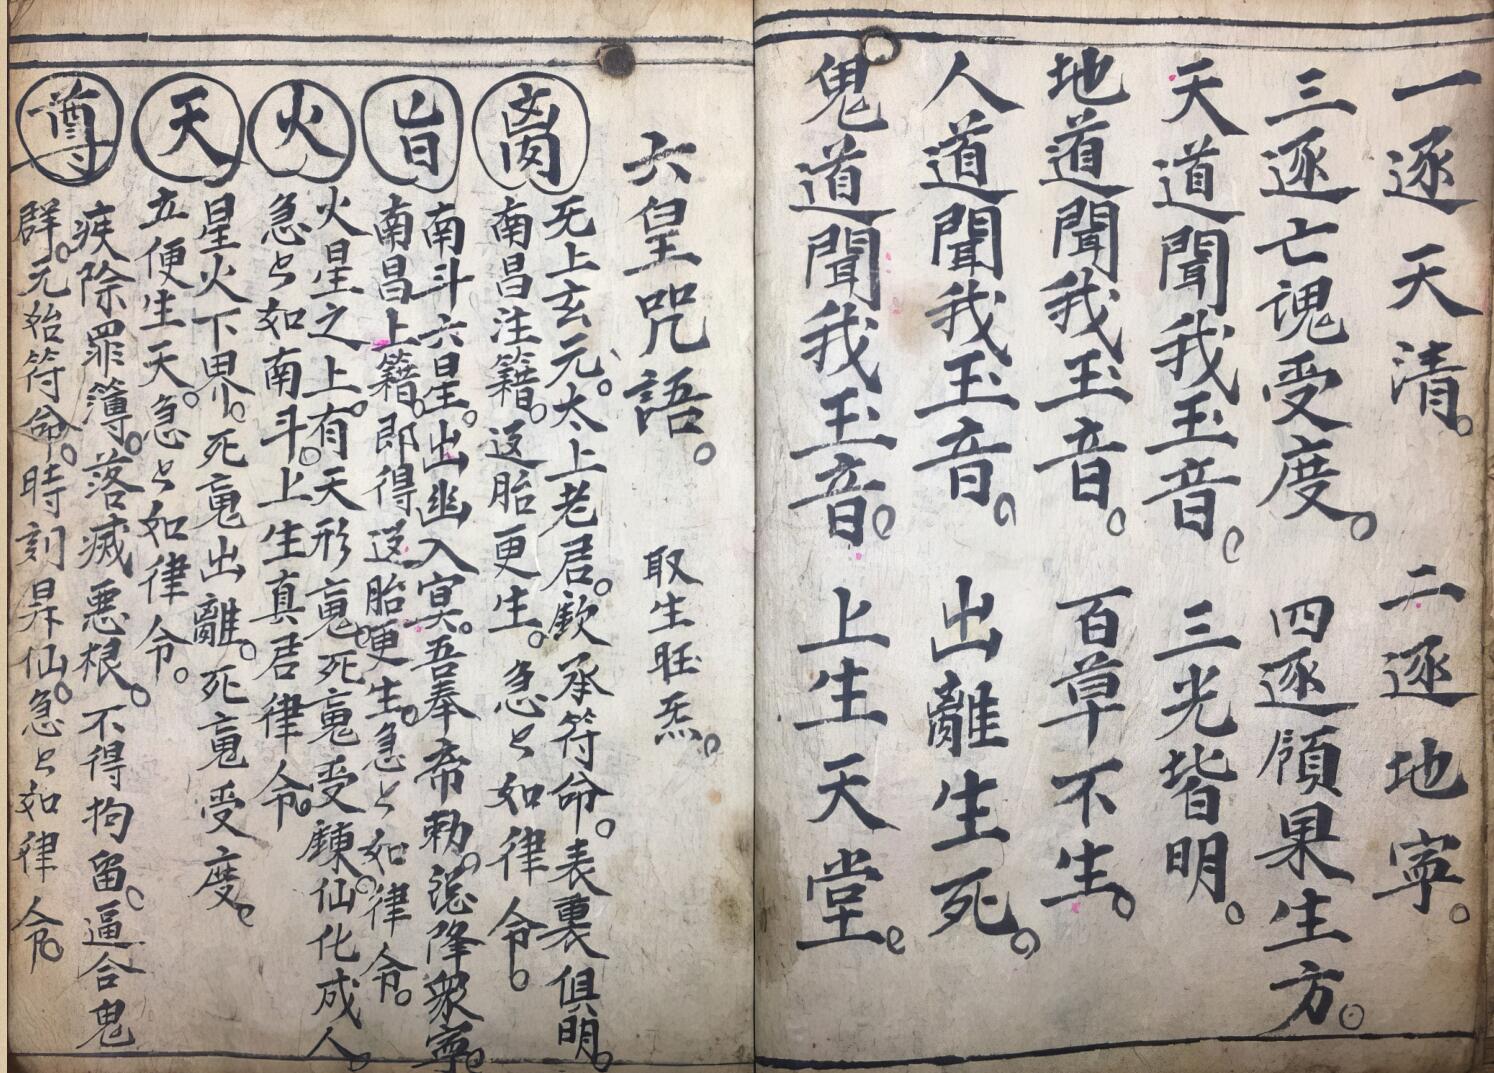 一逐天清。二逐地寧。
三逐亡魂受度。四逐領果生方。
天道聞我玉音。三光皆明。
地道聞我玉音。百草不生。
人道聞我玉音。出離生死。
鬼道聞我玉音。上生天堂。
六皇咒語。取生旺炁。
离
旡上玄元。太上老君。欽承符命。表裏俱明。
南昌注籍。返胎更生。急〻如律令。
旨
南斗六星。出幽入冥。吾奉帝勅。降衆寧。
南昌上籍。即得返胎更生。急〻如律令。
火
火星之上。有天形𩲸。死𩲸受鍊。仙化成人。
急〻如南斗。上生真君律令。
天
星火下界。死𩲸出離。死𩲸受度。
立便生天。急〻如律令。
尊
疾除罪簿。落滅惡根。不得拘留。逼合鬼
群。元始符命。時刻昇仙。急〻如律令。